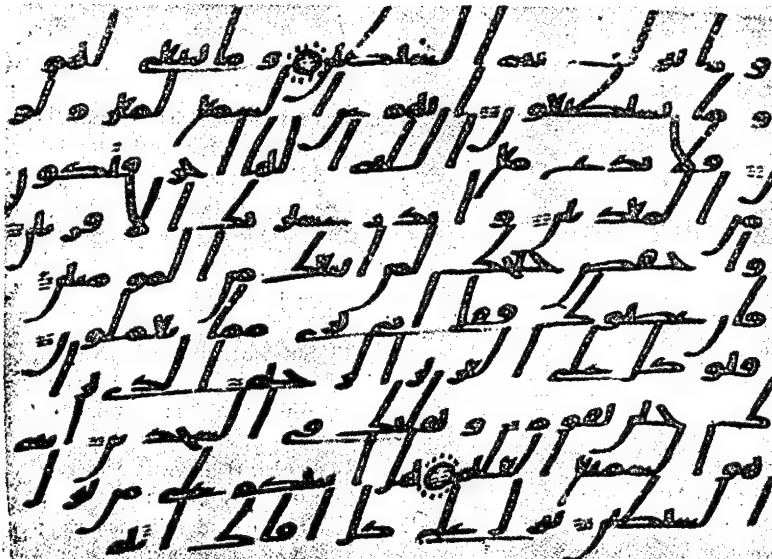 و ما تنزلت به الشيطين و ما ينبغي لهم
و ما يستطيعون انهم عن السمع لمعزولو
ن فلا تدع مع الله الها اخر فتكون
من المعذبين و انذر عشيرتك الاقربين
و اخفض جناحك لمن اتبعك من المومنين
فان عصوك فقل اني بري مما تعملون
و توكل على العزيز الرحيم الذي ير
يك حين تقوم و تقلبك في السجدين انه
هو السميع العليم هل انبيكم على من تنز
ل الشيطين تنزل على كل افاك اثيم